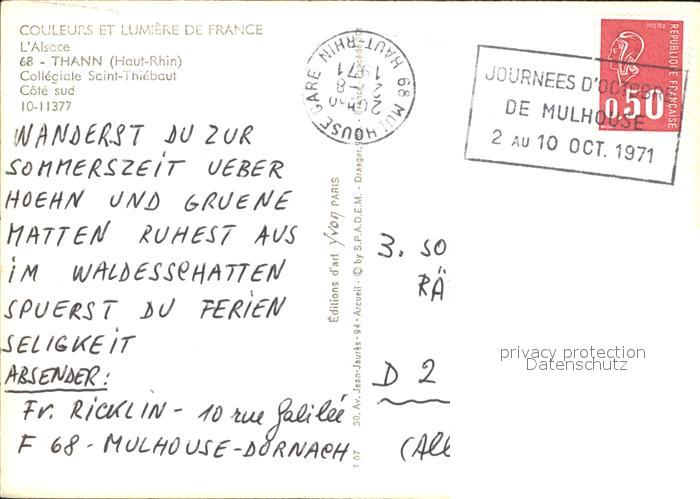 COULEURS ET LUMIÈRE DE FRANCE
L'Alsace
68 - THANN (Haut-Rhin)
Collégiale Saint-Thiébaut
Côté sud
10-11377
WANDERST DU ZUR
SOMMERSZEIT UEBER
HOEHN UND GRUENE
MATTEN RUHEST AUS
IM WALDESSCHATTEN
SPUERST DU FERIEN
SELIGKEIT
ABSENDER:
Fr. RICKLIN - 10 rue Galilée
F 68 - MULHOUSE-DORNACH
Éditions d'art Yvon PARIS
30, Av. Jean-Jaurès - 94 - Arcueil - © by S.P.A.D.E.M. - Draeger
68 MULHOUSE GARE HAUT-RHIN
2 - 8
1971
JOURNEES D'OCTOBRE
DE MULHOUSE
2 AU 10 OCT. 1971
POSTES
REPUBLIQUE FRANÇAISE
0,50
3. SO
RÄ
D 2
(All
privacy protection
Datenschutz